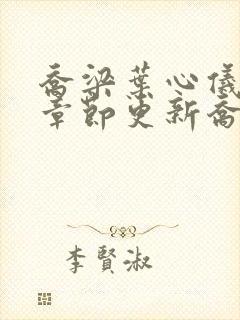 乔梁葉心儀
章節更新喬
李賢淑